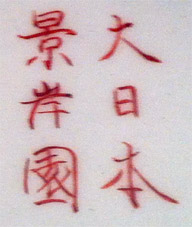 大日本
景岸園